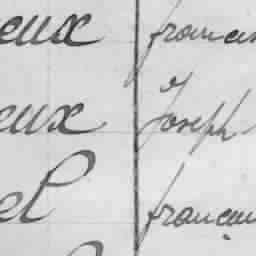 eux francis
eux Joseph
el françois